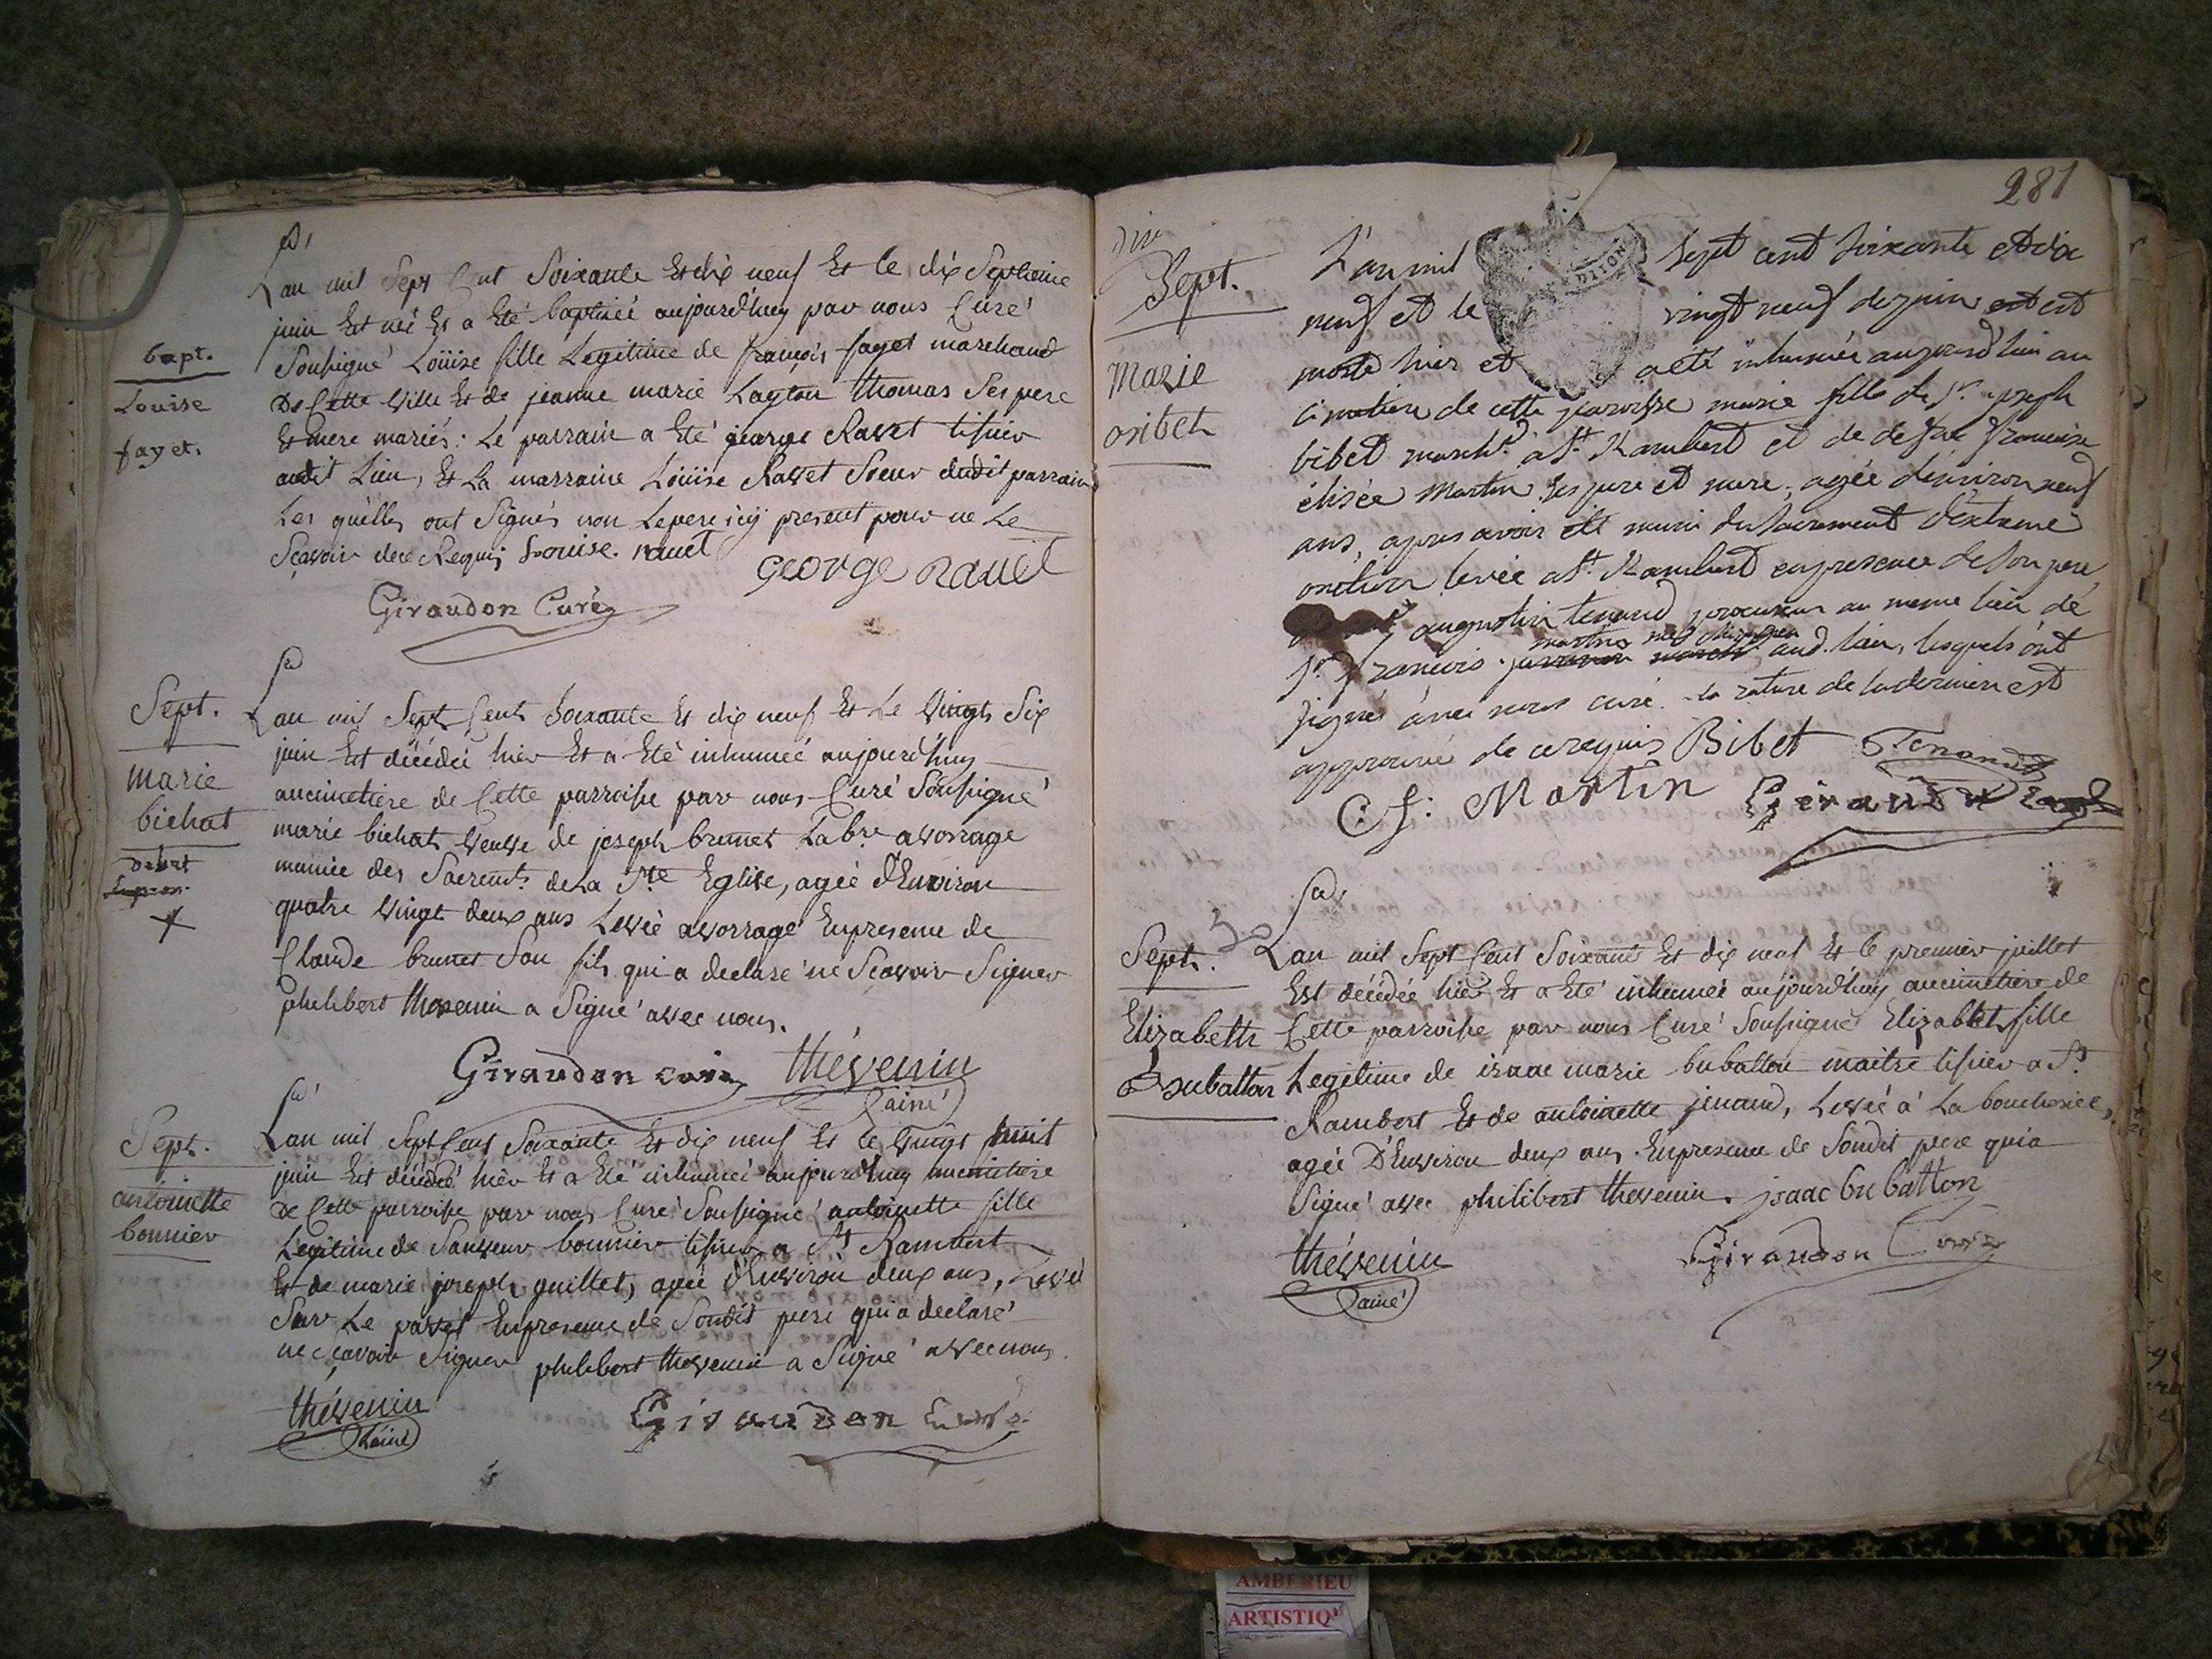 bapt.
Louise
fayet.
Lan mil Sept Cent Soixante Et dix neuf Et le dix Septieme
juin Est né Et a Eté baptiséé aujourd'huy par nous Curé
Soussigné Loüise fille Legitime de françois fayet marchand
De Cette ville Et de jeanne marie thomas Ses pere
Et mere mariés: Le parrain a Eté george Ravet tissier
audit Lieu, Et La marraine Loüise Ravet Soeur dudit parrain
Les quélles ont Signés non Le pere icÿ présent pour ne Le
Sçavoir de ce Requis Louise ravet
george ravet
Giraudon Curé
Sept.
marie
bichat
Lan mil Sept Cent Soixante Et dix neuf Et Le Vingt Six
juin Est décédéé hier Et a Eté inhuméé aujourd'huy
au cimetiere de Cette parroisse par nous Curé Soussigné
marie bichat Veuve de joseph brunet Labr. a vorrage
munie des Sacremts. de La Ste Eglise, agéé d'Environ
quatre Vingt deux ans Levéé a vorrage En presence de
Claude brunet Son fils qui a declaré ne Scavoir Signer
philibert thevenin a Signé avec nous.
Giraudon curé thévenin
l'ainé
Sept.
antoinette
bonnier
Lan mil Sept Cent Soixante Et dix neuf Et Le Vingt huit
juin Est décédéé hièr Et a Eté inhuméé aujourd'huy au cimetiere
de Cette parroisse par nous Curé Soussigné antoinette fille
Legitime de Sauveur bonnier tissier a St Rambert
Et de marie joseph guillet, agéé d'Environ deux ans, Levéé
Sur Le pavet En presence de Sondit pere qui a declaré
ne sçavoir Signer philibert thevenin a Signé avec nous
thévenin
l'ainé
Giraudon Curé
281
Sept.
Marie
DIJON
L'an mil Sept cent Soixante et dix
neuf et le vingt neuf de juin est
morte hier et a été inhumée aujourd'hui au
cimetiere de cette paroisse marie fille de Sr. joseph
bibet marchd. a St. Rambert et de françoise
élisée Martin ses pere et mere, agée d'environ neuf
ans, apres avoir été muni du Sacrement d'extreme
onction levée a St. Rambert en presence de son pere,
augustin tenand procureur au meme lieu de
Sr. françois martin aud. lieu, lesquels ont
signé avec nous curé. la rature de la derniere est
approuvée de ce requis Bibet Tenand
C. f. Martin Giraudon
Sept.
Elizabeth
bubatton
Lan mil Sept Cent Soixante Et dix neuf Et le premier juillet
Est décédée hiér Et a Eté inhuméé aujourd'huy au cimetiere de
Cette parroisse par nous Curé Soussigné Elizabet fille
Legitime de isaac marie bubatton maitre tissier a St
Rambert Et de antoinette jenand, Levéé à La boucherie,
agéé D'Environ deux ans. En presence de Sondit pere qui a
Signé avec philibert thevenin. isaac bubatton
thévenin
l'ainé
Giraudon Curé
AMBERIEU
ARTISTIQ'